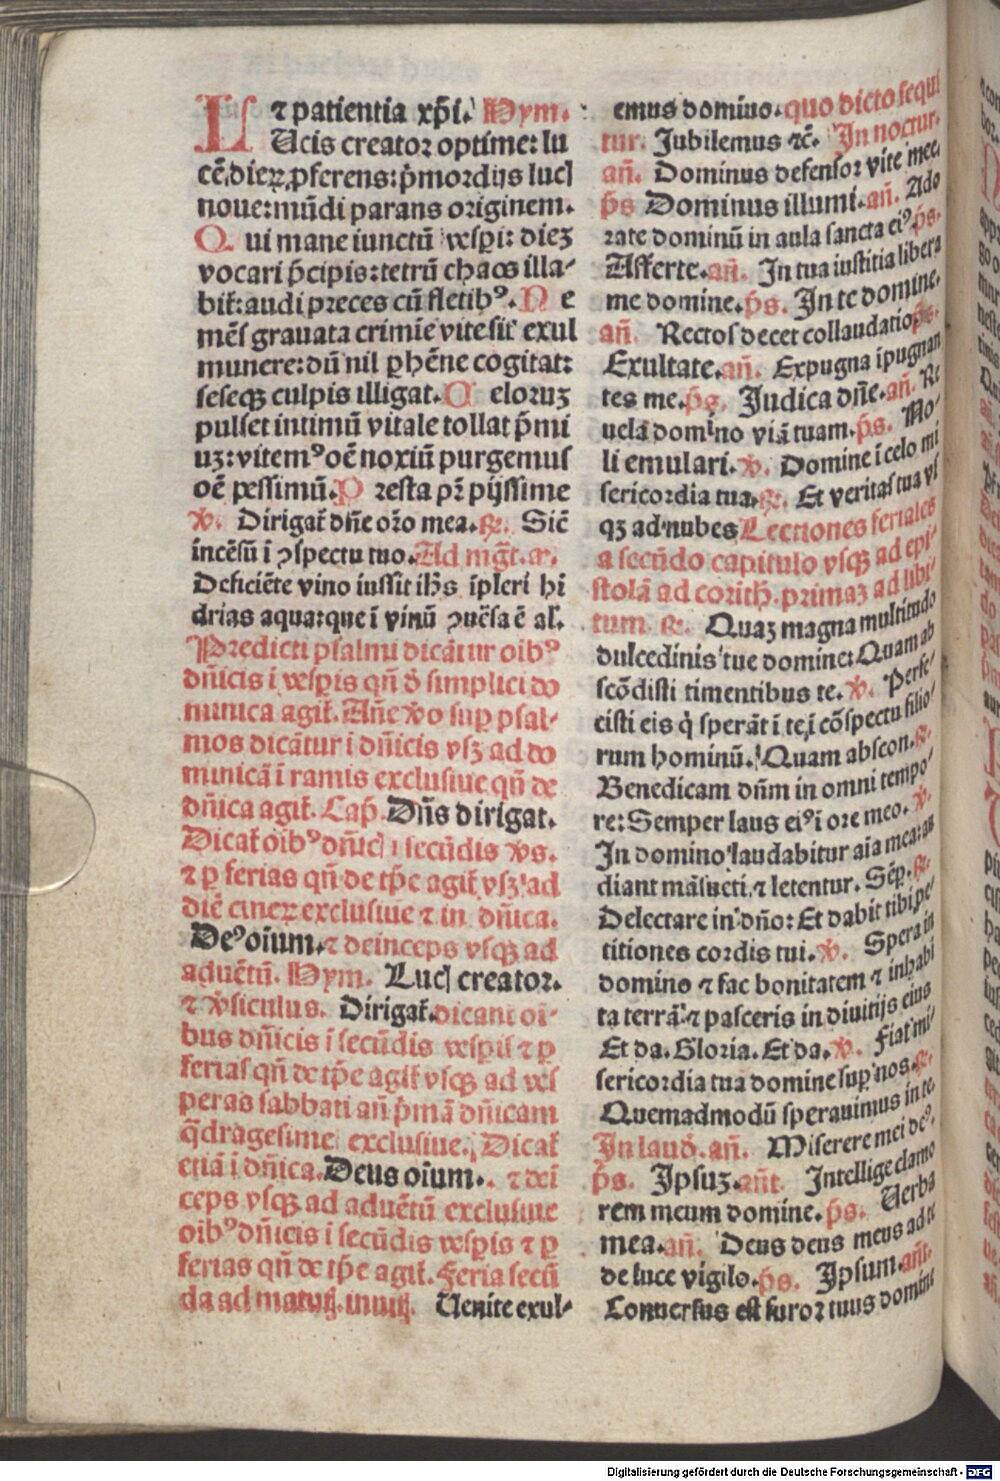 ⁊ patientia xp̄i. Hym.
LUcis creator optime: lu
cē dieꝝ ꝓferens: p̄mordijs luc
noue: mūdi parans originem.
Qui mane iunctū vesp̄i: diez
vocari p̄cipis: tetrū chaos illa-
bit᷑: audi preces cū fletib⁹. Ne
mēs grauata crimīe vite sit exul
munere: dū nil ꝑhēne cogitat:
seseqꝫ culpis illigat. Celoruꝫ
pulset intimū vitale tollat p̄mi
uꝫ: vitem⁹ oē noxiū purgemus
oē pessimū. Presta pr̄ pijssime
℣. Dirigat᷑ dn̄e or̄o mea. ℟. Sic̄
incēsū ī ꝯspectu tuo. Ad mḡt. añ.
Deficiēte vino iussit ih̄s īpleri hi
drias aqua: que ī vinū ꝯuersa ē al᷑.
Predicti psalmi dicātur oib⁹
dn̄icis i vesp̄is qn̄ d̄ simplici do
minica agit᷑. Añe v̄o sup psal-
mos dicātur i dn̄icis vsqꝫ ad do
minicā i ramis exclusiue qn̄ de
dn̄ica agit᷑. Cap̄. Dn̄s dirigat.
Dicat᷑ oib⁹ dn̄ic i secūdis v̄s.
⁊ ꝑ ferias qn̄ de tp̄e agit᷑ vsqꝫ ad
diē cineꝝ exclusiue ⁊ in dn̄ica.
De⁹ oīum. ⁊ deinceps vsqꝫ ad
aduētū. Hym. Luc creator.
⁊ v̄siculus. Dirigat᷑. dicant oī-
bus dn̄icis i secūdis vesp̄is ⁊ ꝑ
ferias qn̄ de tp̄e agit᷑ vsqꝫ ad ves
peras sabbati añ p̄mā dn̄icam
q̄dragesime exclusiue. Dicat᷑
etiā i dn̄ica. Deus oīum. ⁊ deī
ceps vsqꝫ ad aduētū exclusiue
oib⁹ dn̄icis i secūdis vesp̄is ⁊ ꝑ
ferias qn̄ de tp̄e agit᷑. Feria secū
da ad matuť. inuit. Uenite exul-
emus domino. quo dicto sequi
tur. Jubilemus ⁊c̄. In noctur.
añ. Dominus defensor vite mee.
p̄s Dominus illumi. añ. Ado
rate dominū in aula sancta ei⁹. p̄s.
Afferte. añ. In tua iustitia libera
me domine. p̄s. In te domine.
añ. Rectos decet collaudatio. p̄s.
Exultate. añ. Expugna īpugnan
tes me. p̄s. Judica dn̄e. añ. Re
uela domino viā tuam. p̄s. No-
li emulari. ℣. Domine ī celo mi
sericordia tua. ℟. Et veritas tua vs
qꝫ ad nubes Lectiones feriales
a secūdo capitulo vsqꝫ ad epi-
stolā ad corith. primaꝫ ad libi-
tum ℟. Quaꝫ magna multitudo
dulcedinis tue domine: Quam ab
scōdisti timentibus te. ℣. Perfe-
cisti eis q̄ sperāt ī te, ī cōspectu filio-
rum hominū. Quam abscon. ℟.
Benedicam dn̄m in omni tempo
re: Semper laus ei⁹ ī ore meo. ℣.
In domino laudabitur aīa mea: au
diant māsueti, ⁊ letentur. Sēp. ℟.
Delectare in dn̄o: Et dabit tibi pe
titiones cordis tui. ℣. Spera in
domino ⁊ fac bonitatem ⁊ inhabi
ta terrā: ⁊ pasceris in diuitijs eius
Et da. Gloria. Et da. ℣. Fiat mi-
sericordia tua domine sup nos. ℟.
Quemadmodū sperauimus in te.
In laud. añ. Miserere mei de⁹.
p̄s. Ipsuꝫ. añt. Intellige clamo
rem meum domine. p̄s. Uerba
mea. añ. Deus deus meus ad te
de luce vigilo. p̄s. Ipsum. añt.
Conuersus est furor tuus domine
Digitalisierung gefördert durch die Deutsche Forschungsgemeinschaft - DFG